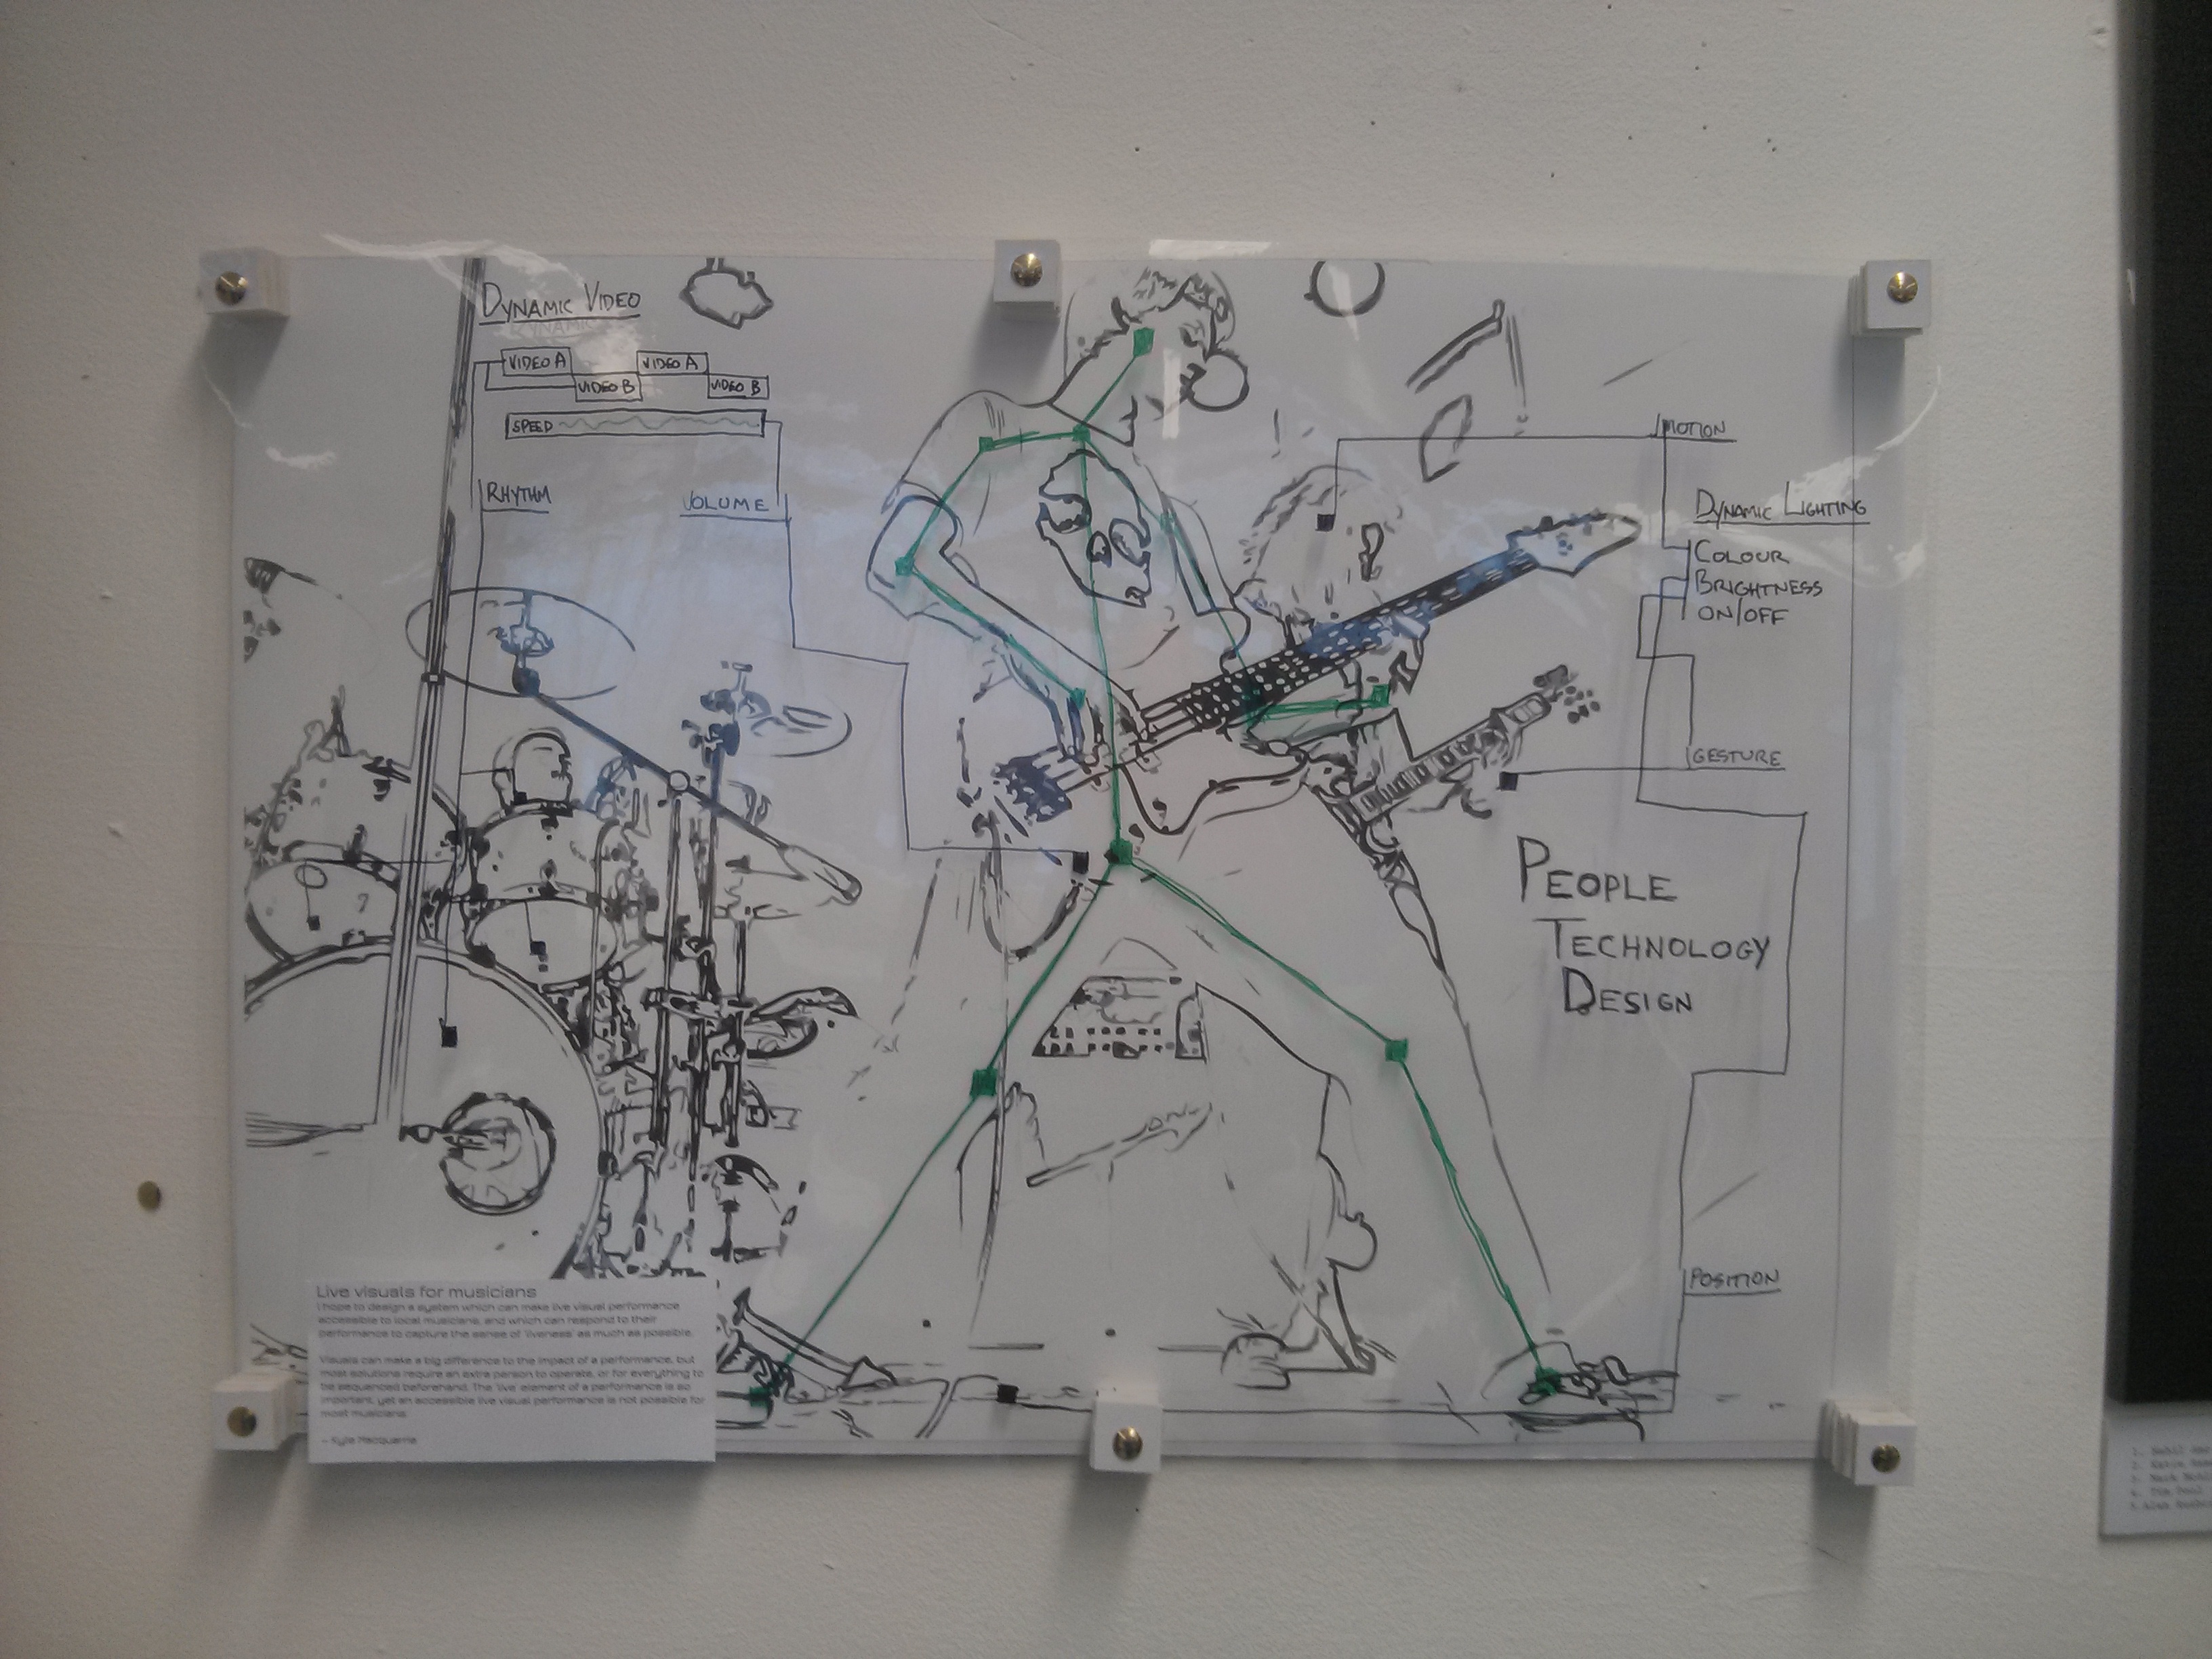 DYNAMIC VIDEO
DYNAMIC
VIDEO A
VIDEO A
VIDEO B
VIDEO B
SPEED
RHYTHM
VOLUME
MOTION
DYNAMIC LIGHTING
COLOUR
BRIGHTNESS
ON/OFF
GESTURE
PEOPLE
TECHNOLOGY
DESIGN
POSITION
Live visuals for musicians
I hope to design a system which can make live visual performance
accessible to local musicians, and which can respond to their
performance to capture the sense of 'liveness' as much as possible.
Visuals can make a big difference to the impact of a performance, but
most solutions require an extra person to operate, or for everything to
be sequenced beforehand. The 'live' element of a performance is so
important, yet an accessible live visual performance is not possible for
most musicians.
- Kyle Macquarrie